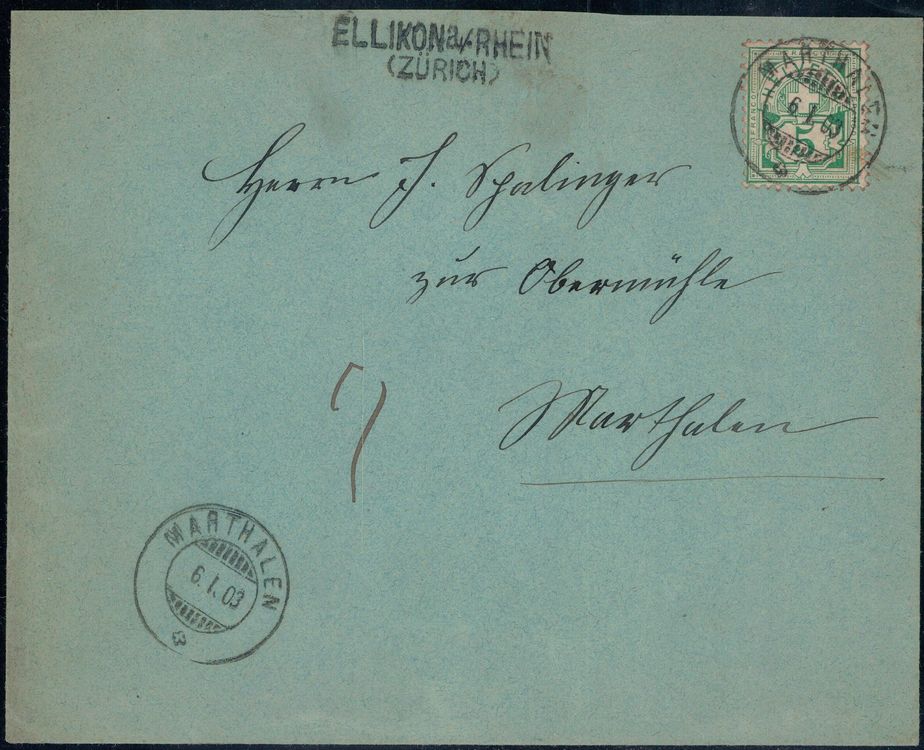 ELLIKON a/RHEIN
(ZÜRICH)
MARTHALEN
6.I.03
FRANCO
HELVETIA
5
Herrn J. Spalinger
zur Obermühle
Marthalen
MARTHALEN
6.I.03